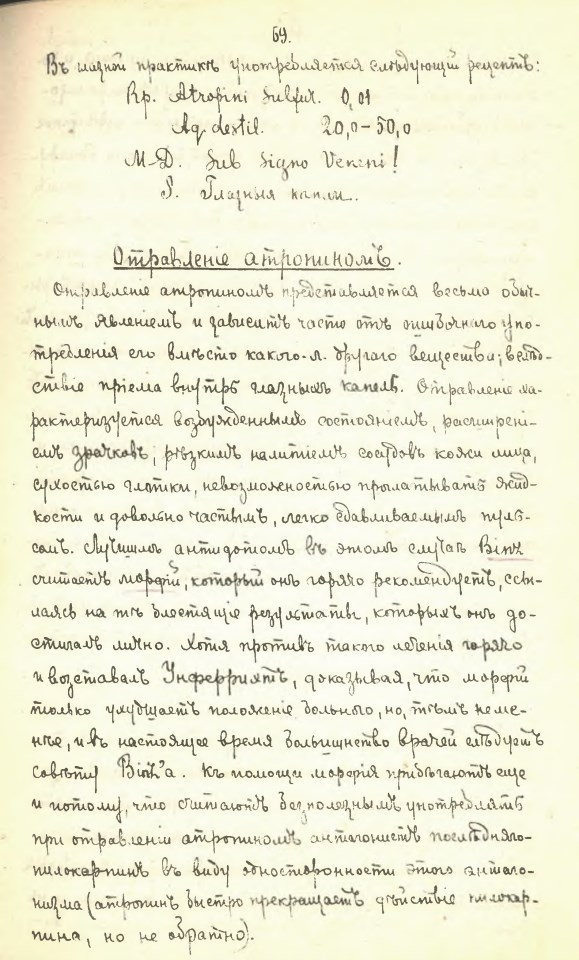 69.
Въ глазной практикѣ употребляется слѣдующій рецептъ:
Rp. Atropini Sulfur. 0,01
Aq. destil. 20,0–50,0
M-D. Sub Signo Veneni!
S. Глазныя капли.
Отравленіе атропиномъ.
Отравленіе атропиномъ представляется весьма обыч-
нымъ явленіемъ и зависитъ часто отъ ошибочнаго упо-
требленія его вмѣсто какого-л. другаго вещества; вслѣд-
ствіе пріема внутрь глазныхъ капель. Отравленіе ха-
рактеризуется возбужденнымъ состояніемъ, расширені-
емъ зрачковъ, рѣзкимъ налитіемъ сосудовъ кожи лица,
сухостью глотки, невозможностью проглатывать жид-
кости и довольно частымъ, легко сдавливаемымъ пуль-
сомъ. Лучшимъ антидотомъ въ этомъ случаѣ Binz
считаетъ морфій, который онъ горячо рекомендуетъ, ссы-
лаясь на тѣ блестящіе результаты, которыхъ онъ до-
стигалъ лично. Хотя противъ такого леченія горячо
и возставалъ Унферрихтъ, доказывая, что морфій
только ухудшаетъ положеніе больного, но, тѣмъ неме-
нѣе, и въ настоящее время большинство врачей слѣдуетъ
совѣту Binz'a. Къ помощи морфія прибѣгаютъ еще
и потому, что считаютъ безполезнымъ употреблять
при отравленіи атропиномъ антагонистъ послѣдняго-
пилокарпинъ въ виду односторонности этого антаго-
низма (атропинъ быстро прекращаетъ дѣйствіе пилокар-
пина, но не обратно).